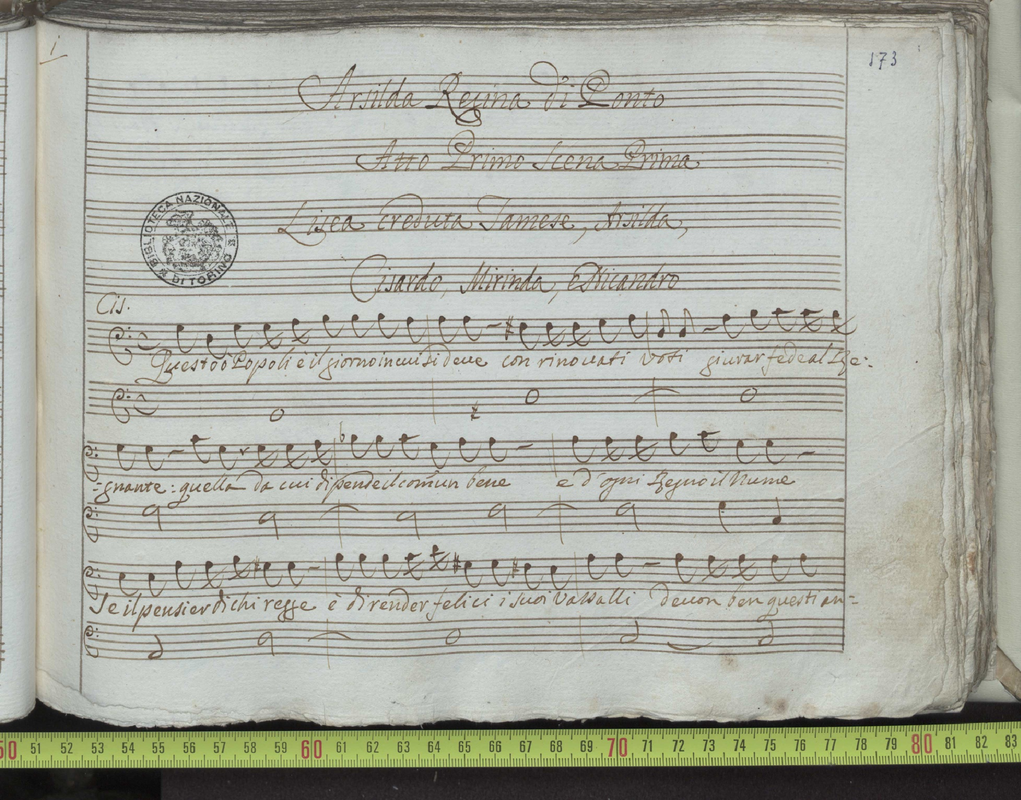 1
173
Arsilda Regina di Ponto
Atto Primo Scena Prima
Lisea creduta Tamese, Arsilda,
Cisardo, Mirinda, e Nicandro
BIBLIOTECA NAZIONALE DI TORINO
Cis.
Questo o Popoli è il giorno in cui si deve con rinovati voti giurar fede al Re:
gnante: quella da cui dipende il comun bene e d'ogni Regno il Nume
Se il pensier di chi regge è di render felici i suoi Vassalli devon ben questi an=
50 51 52 53 54 55 56 57 58 59 60 61 62 63 64 65 66 67 68 69 70 71 72 73 74 75 76 77 78 79 80 81 82 83